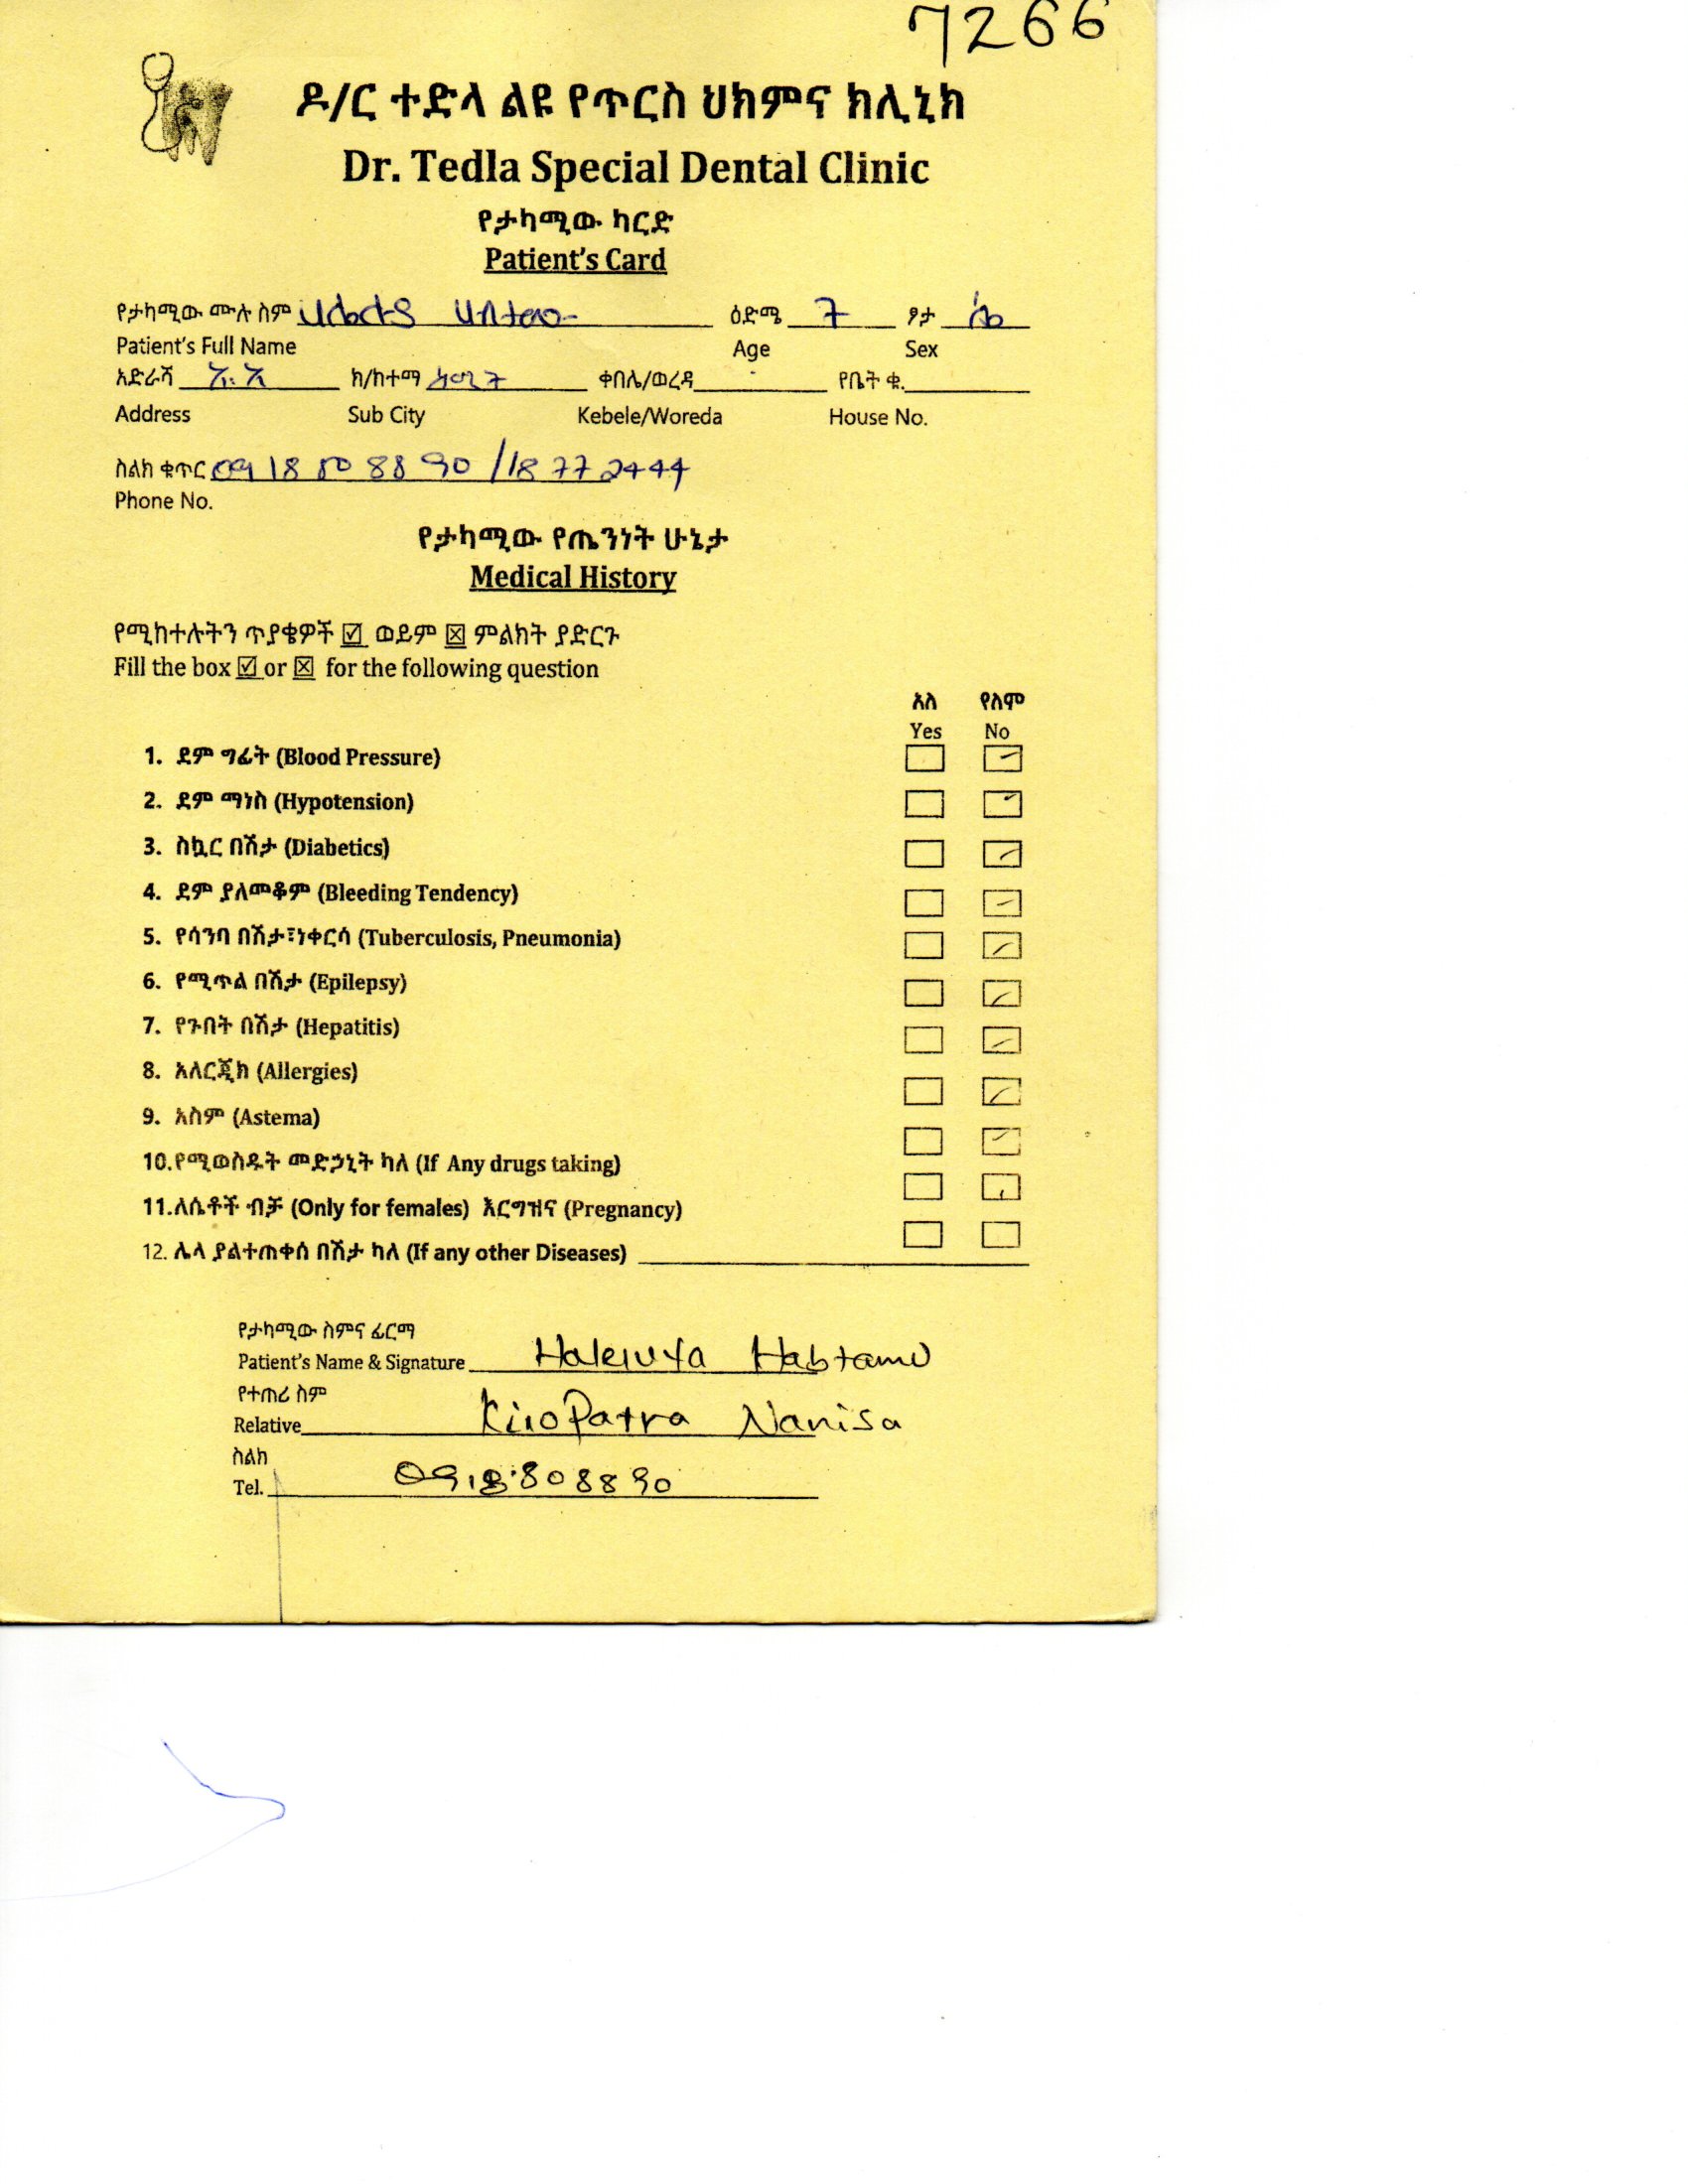 7266
ዶ/ር ተድላ ልዩ የጥርስ ህክምና ክሊኒክ
Dr. Tedla Special Dental Clinic
የታካሚው ካርድ
Patient's Card
የታካሚው ሙሉ ስም ዕድሜ 7 ፆታ ሴ
Patient's Full Name Age Sex
አድራሻ አ.አ ክ/ከተማ ቀበሌ/ወረዳ የቤት ቁ.
Address Sub City Kebele/Woreda House No.
ስልክ ቁጥር 0918 80 88 90 / 18 77 2444
Phone No.
የታካሚው የጤንነት ሁኔታ
Medical History
የሚከተሉትን ጥያቄዎች ☑ ወይም ☒ ምልክት ያድርጉ
Fill the box ☑ or ☒ for the following question
አለ የለም
Yes No
1. ደም ግፊት (Blood Pressure)
2. ደም ማነስ (Hypotension)
3. ስኳር በሽታ (Diabetics)
4. ደም ያለመቆም (Bleeding Tendency)
5. የሳንባ በሽታ፣ነቀርሳ (Tuberculosis, Pneumonia)
6. የሚጥል በሽታ (Epilepsy)
7. የጉበት በሽታ (Hepatitis)
8. አለርጂክ (Allergies)
9. አስም (Astema)
10.የሚወስዱት መድኃኒት ካለ (If Any drugs taking)
11.ለሴቶች ብቻ (Only for females) እርግዝና (Pregnancy)
12. ሌላ ያልተጠቀሰ በሽታ ካለ (If any other Diseases)
የታካሚው ስምና ፊርማ
Patient's Name & Signature Haleluya Habtamu
የተጠሪ ስም
Relative Kilopatra Nanisa
ስልክ
Tel. 0918808890